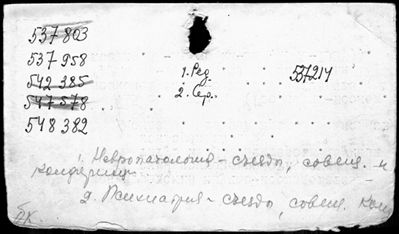 537 803
537 958
542 385
547 578
548 382
1. Ред.
2. Сер.
537214
1. Невропатология – съезды, совещ. и
конференции
2. Психиатрия – съезды, совещ. кон